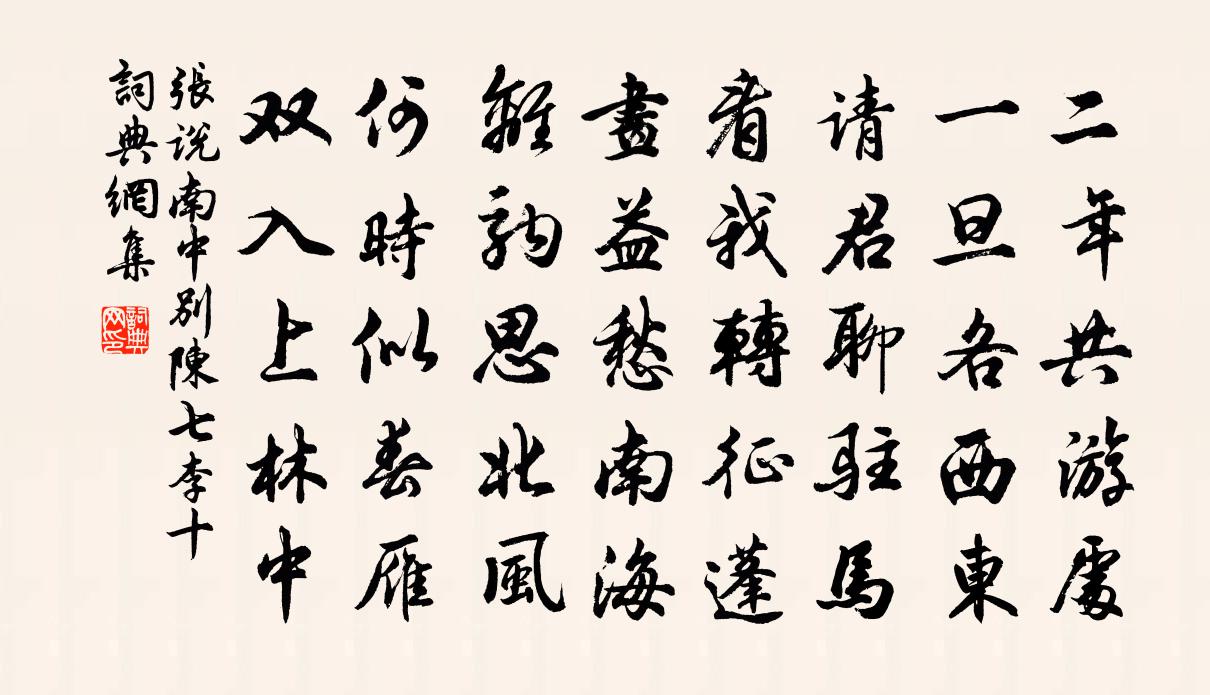 二年共游處
一旦各西東
请君聊駐馬
看我轉征蓬
畫益愁南海
離駒思北風
何時似春雁
双入上林中
張说南中别陳七李十
詞典網集
詞典网印